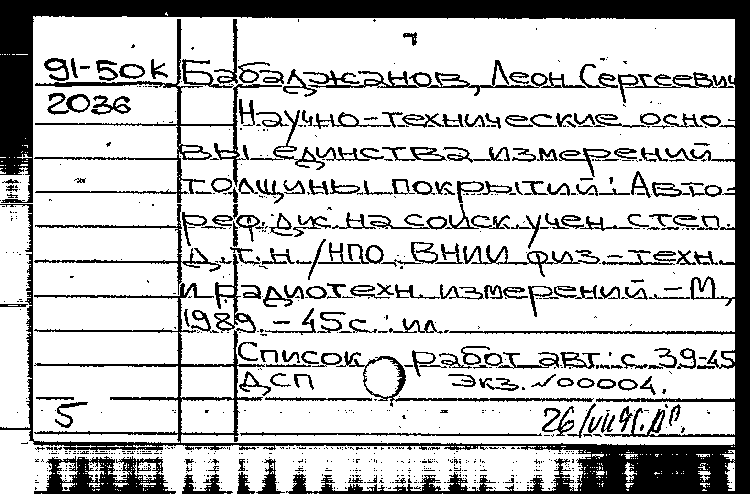 91-50к Бабаджанов, Леон Сергеевич
2036 Научно-технические осно-
вы единства измерений
толщины покрытий: Авто-
реф. дис. на соиск. учен. степ.
д.т.н. /НПО ВНИИ физ-техн.
и радиотехн. измерений. - М.,
1989. - 45с.: ил.
Список работ авт: с. 39-45
ДСП Экз. №00004.
5 26/VII 91.